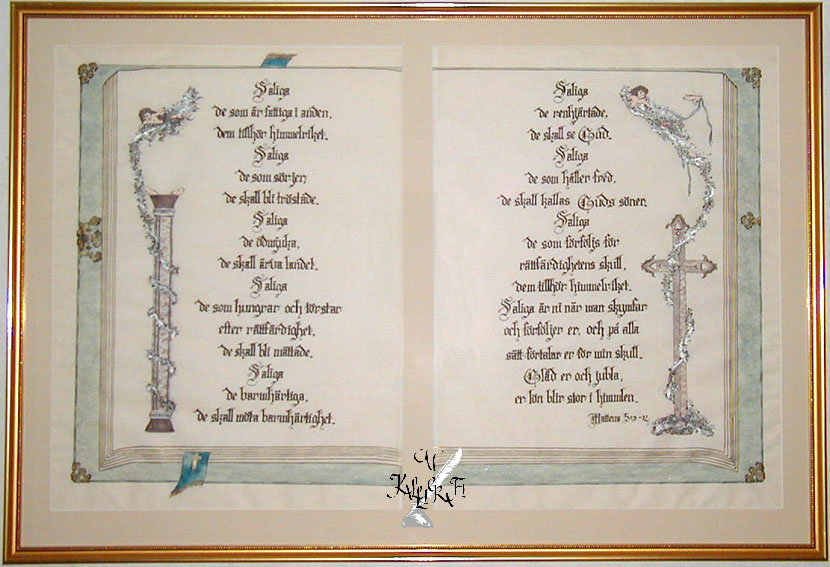 Saliga
de som är fattiga i anden,
dem tillhör himmelriket.
Saliga
de som sörjer,
de skall bli tröstade.
Saliga
de ödmjuka,
de skall ärva landet.
Saliga
de som hungrar och törstar
efter rättfärdighet,
de skall bli mättade.
Saliga
de barmhärtiga,
de skall möta barmhärtighet.
Saliga
de renhjärtade,
de skall se Gud.
Saliga
de som håller fred,
de skall kallas Guds söner.
Saliga
de som förföljs för
rättfärdighetens skull,
dem tillhör himmelriket.
Saliga är ni när man skymfar
och förföljer er, och på alla
sätt förtalar er för min skull.
Gläd er och jubla,
er lön blir stor i himlen.
Matteus 5:3-12
KALLIGRAFI